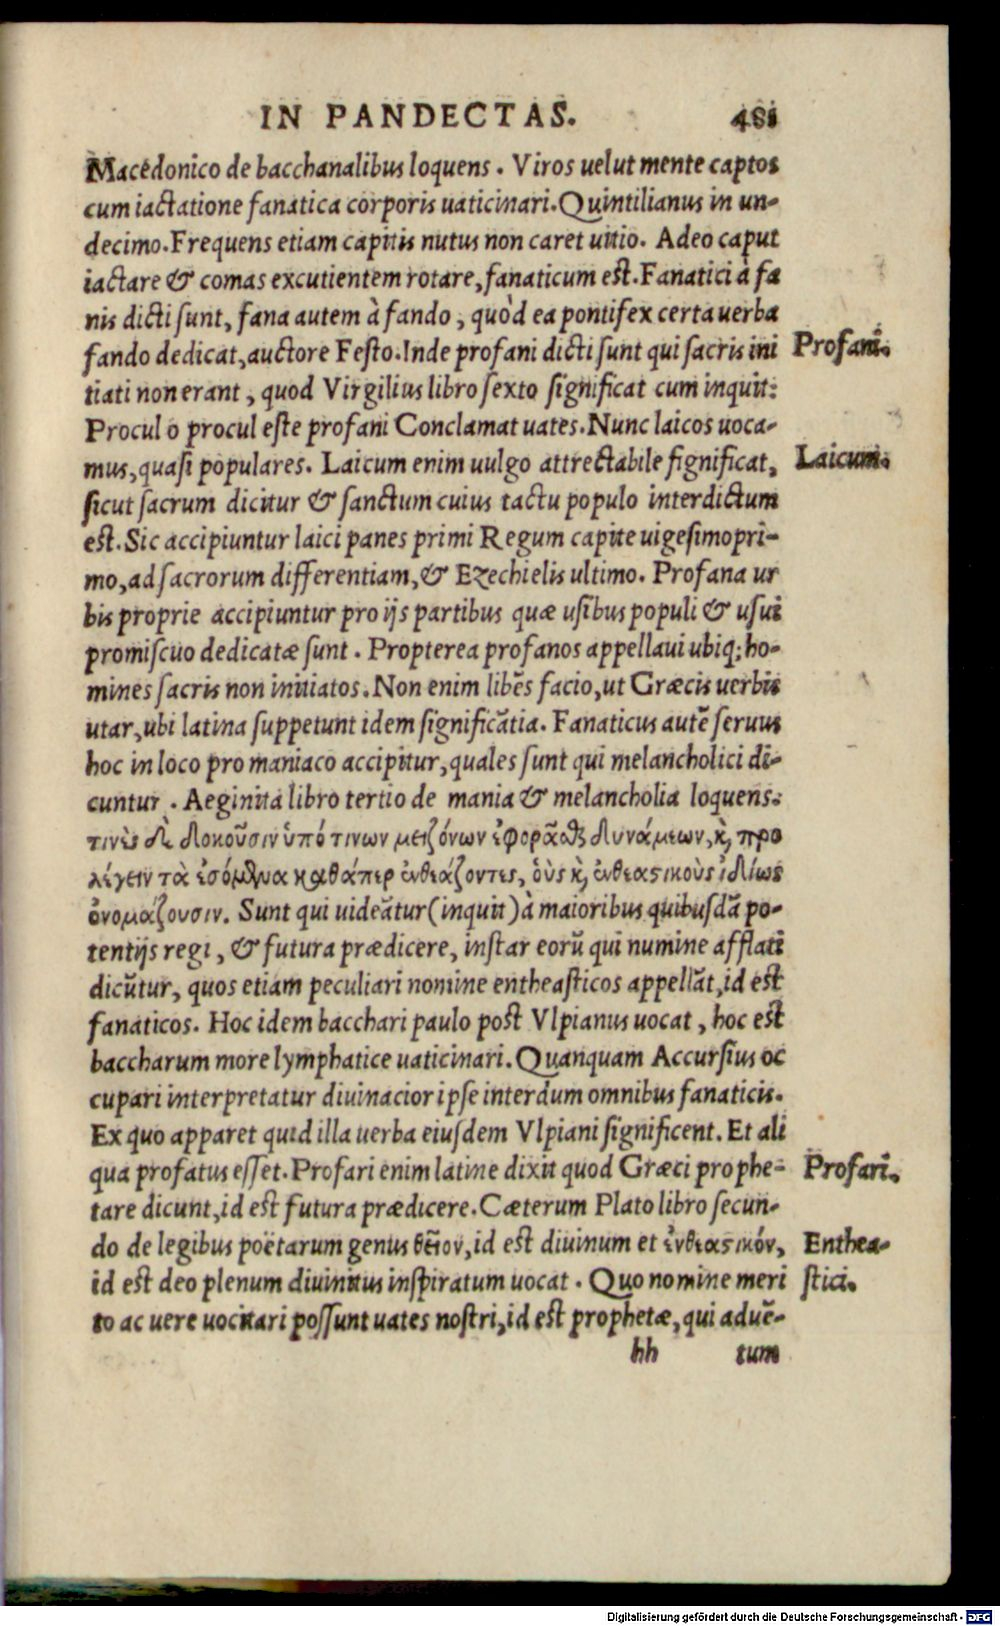 IN PANDECTAS. 481
Macedonico de bacchanalibus loquens. Viros uelut mente captos
cum iactatione fanatica corporis uaticinari. Quintilianus in un-
decimo. Frequens etiam capitis nutus non caret uitio. Adeo caput
iactare & comas excutientem rotare, fanaticum est. Fanatici à fa
nis dicti sunt, fana autem à fando, quòd ea pontifex certa uerba
fando dedicat, auctore Festo. Inde profani dicti sunt qui sacris ini
Profani.
tiati non erant, quod Virgilius libro sexto significat cum inquit:
Procul o procul este profani Conclamat uates. Nunc laicos uoca-
mus, quasi populares. Laicum enim uulgo attrectabile significat,
Laicum.
sicut sacrum dicitur & sanctum cuius tactu populo interdictum
est. Sic accipiuntur laici panes primi Regum capite uigesimopri-
mo, ad sacrorum differentiam, & Ezechielis ultimo. Profana ur
bis proprie accipiuntur pro ijs partibus quæ usibus populi & usui
promiscuo dedicatæ sunt. Propterea profanos appellaui ubiq; ho-
mines sacris non initiatos. Non enim libẽs facio, ut Græcis uerbis
utar, ubi latina suppetunt idem significãtia. Fanaticus autẽ seruus
hoc in loco pro maniaco accipitur, quales sunt qui melancholici di-
cuntur. Aeginita libro tertio de mania & melancholia loquens:
τινὲς δὲ δοκοῦσιν ὑπό τινων μειζόνων ἐφορᾶσθαι δυνάμεων, καὶ προ
λέγειν τὰ ἐσόμενα καθάπερ ἐνθεάζοντες, οὓς καὶ ἐνθεαστικοὺς ἰδίως
ὀνομάζουσιν. Sunt qui uideãtur (inquit) à maioribus quibusdã po-
tentijs regi, & futura prædicere, instar eorũ qui numine afflati
dicũtur, quos etiam peculiari nomine entheasticos appellãt, id est
fanaticos. Hoc idem bacchari paulo post Vlpianus uocat, hoc est
baccharum more lymphatice uaticinari. Quanquam Accursius oc
cupari interpretatur diuinacior ipse interdum omnibus fanaticis.
Ex quo apparet quid illa uerba eiusdem Vlpiani significent. Et ali
qua profatus esset. Profari enim latine dixit quod Græci prophe-
Profari.
tare dicunt, id est futura prædicere. Cæterum Plato libro secun-
do de legibus poëtarum genus θεῖον, id est diuinum et ἐνθεαστικόν,
Enthea-
id est deo plenum diuinitus inspiratum uocat. Quo nomine meri
stici.
to ac uere uocitari possunt uates nostri, id est prophetæ, qui aduẽ-
hh tum
Digitalisierung gefördert durch die Deutsche Forschungsgemeinschaft - DFG